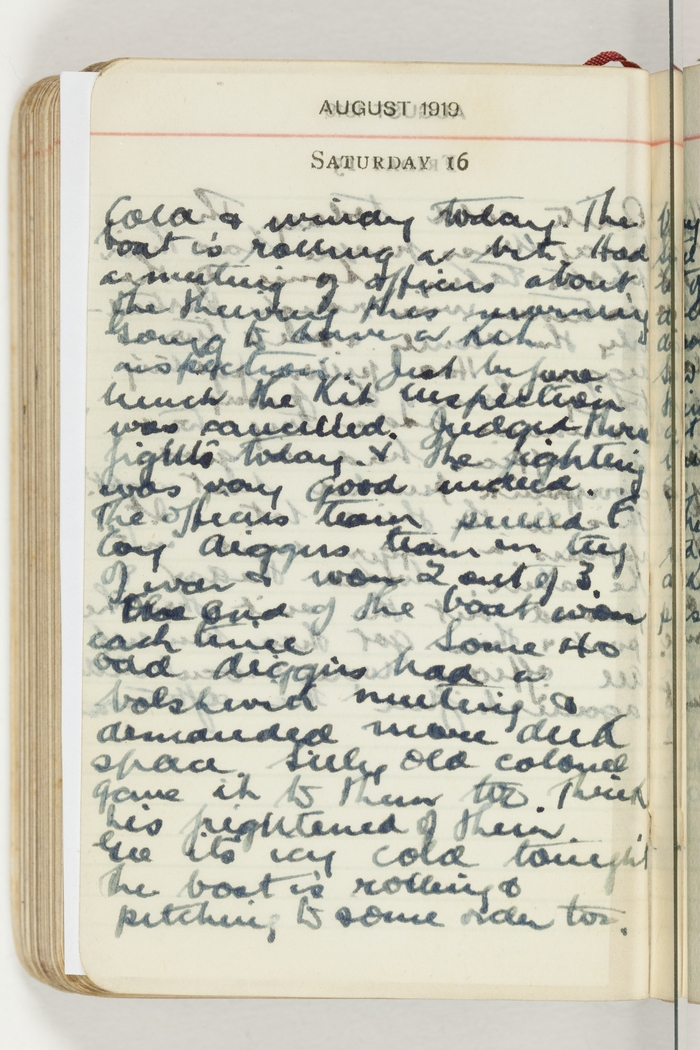 AUGUST 1919
SATURDAY 16
Cold & windy today. The
boat is rolling a bit. Had
a meeting of officers about
the thieving this morning
Going to have a kit
inspection. Just before
lunch the Kit inspection
was cancelled. Judged three
fights today. & the fighting
was very good indeed.
The officers team pulled
diggers team in tug
of war & won 2 out of 3.
end of the boat won
each time Some 40
odd diggers had a
bolshevick meeting &
demanded more deck
space. Silly old colonel
gave it to them too. Think
his frightened of them.
Gee its icy cold tonight
The boat is rolling &
pitching to some order too.